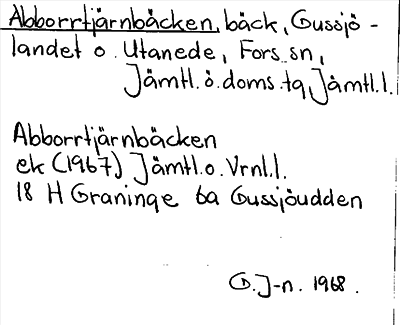 Abborrtjärnbäcken, bäck, Gussjö-
landet o. Utanede, Fors sn,
Jämtl. ö. doms. tg, Jämtl. l.
Abborrtjärnbäcken
ek (1967) Jämtl. o. Vrnl. l.
18 H Graninge 6a Gussjöudden
G. J-n. 1968.